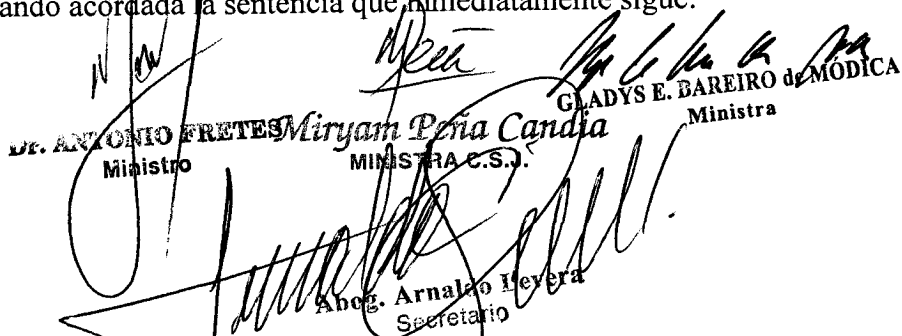 ando acordada la sentencia que inmediatamente sigue:
Dr. ANTONIO FRETES
Ministro
Miryam Peña Candia
MINISTRA C.S.J.
GLADYS E. BAREIRO de MÓDICA
Ministra
Abog. Arnaldo Levera
Secretario